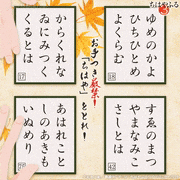 ちはやふる
ゆめのかよ
ひちひとめ
よくらむ
18
お手つき厳禁!
「ちはや」をとれ!
からくれな
ゐにみつく
くるとは
17
すゑのまつ
やまなみこ
さしとは
42
あはれこと
しのあきも
いぬめり